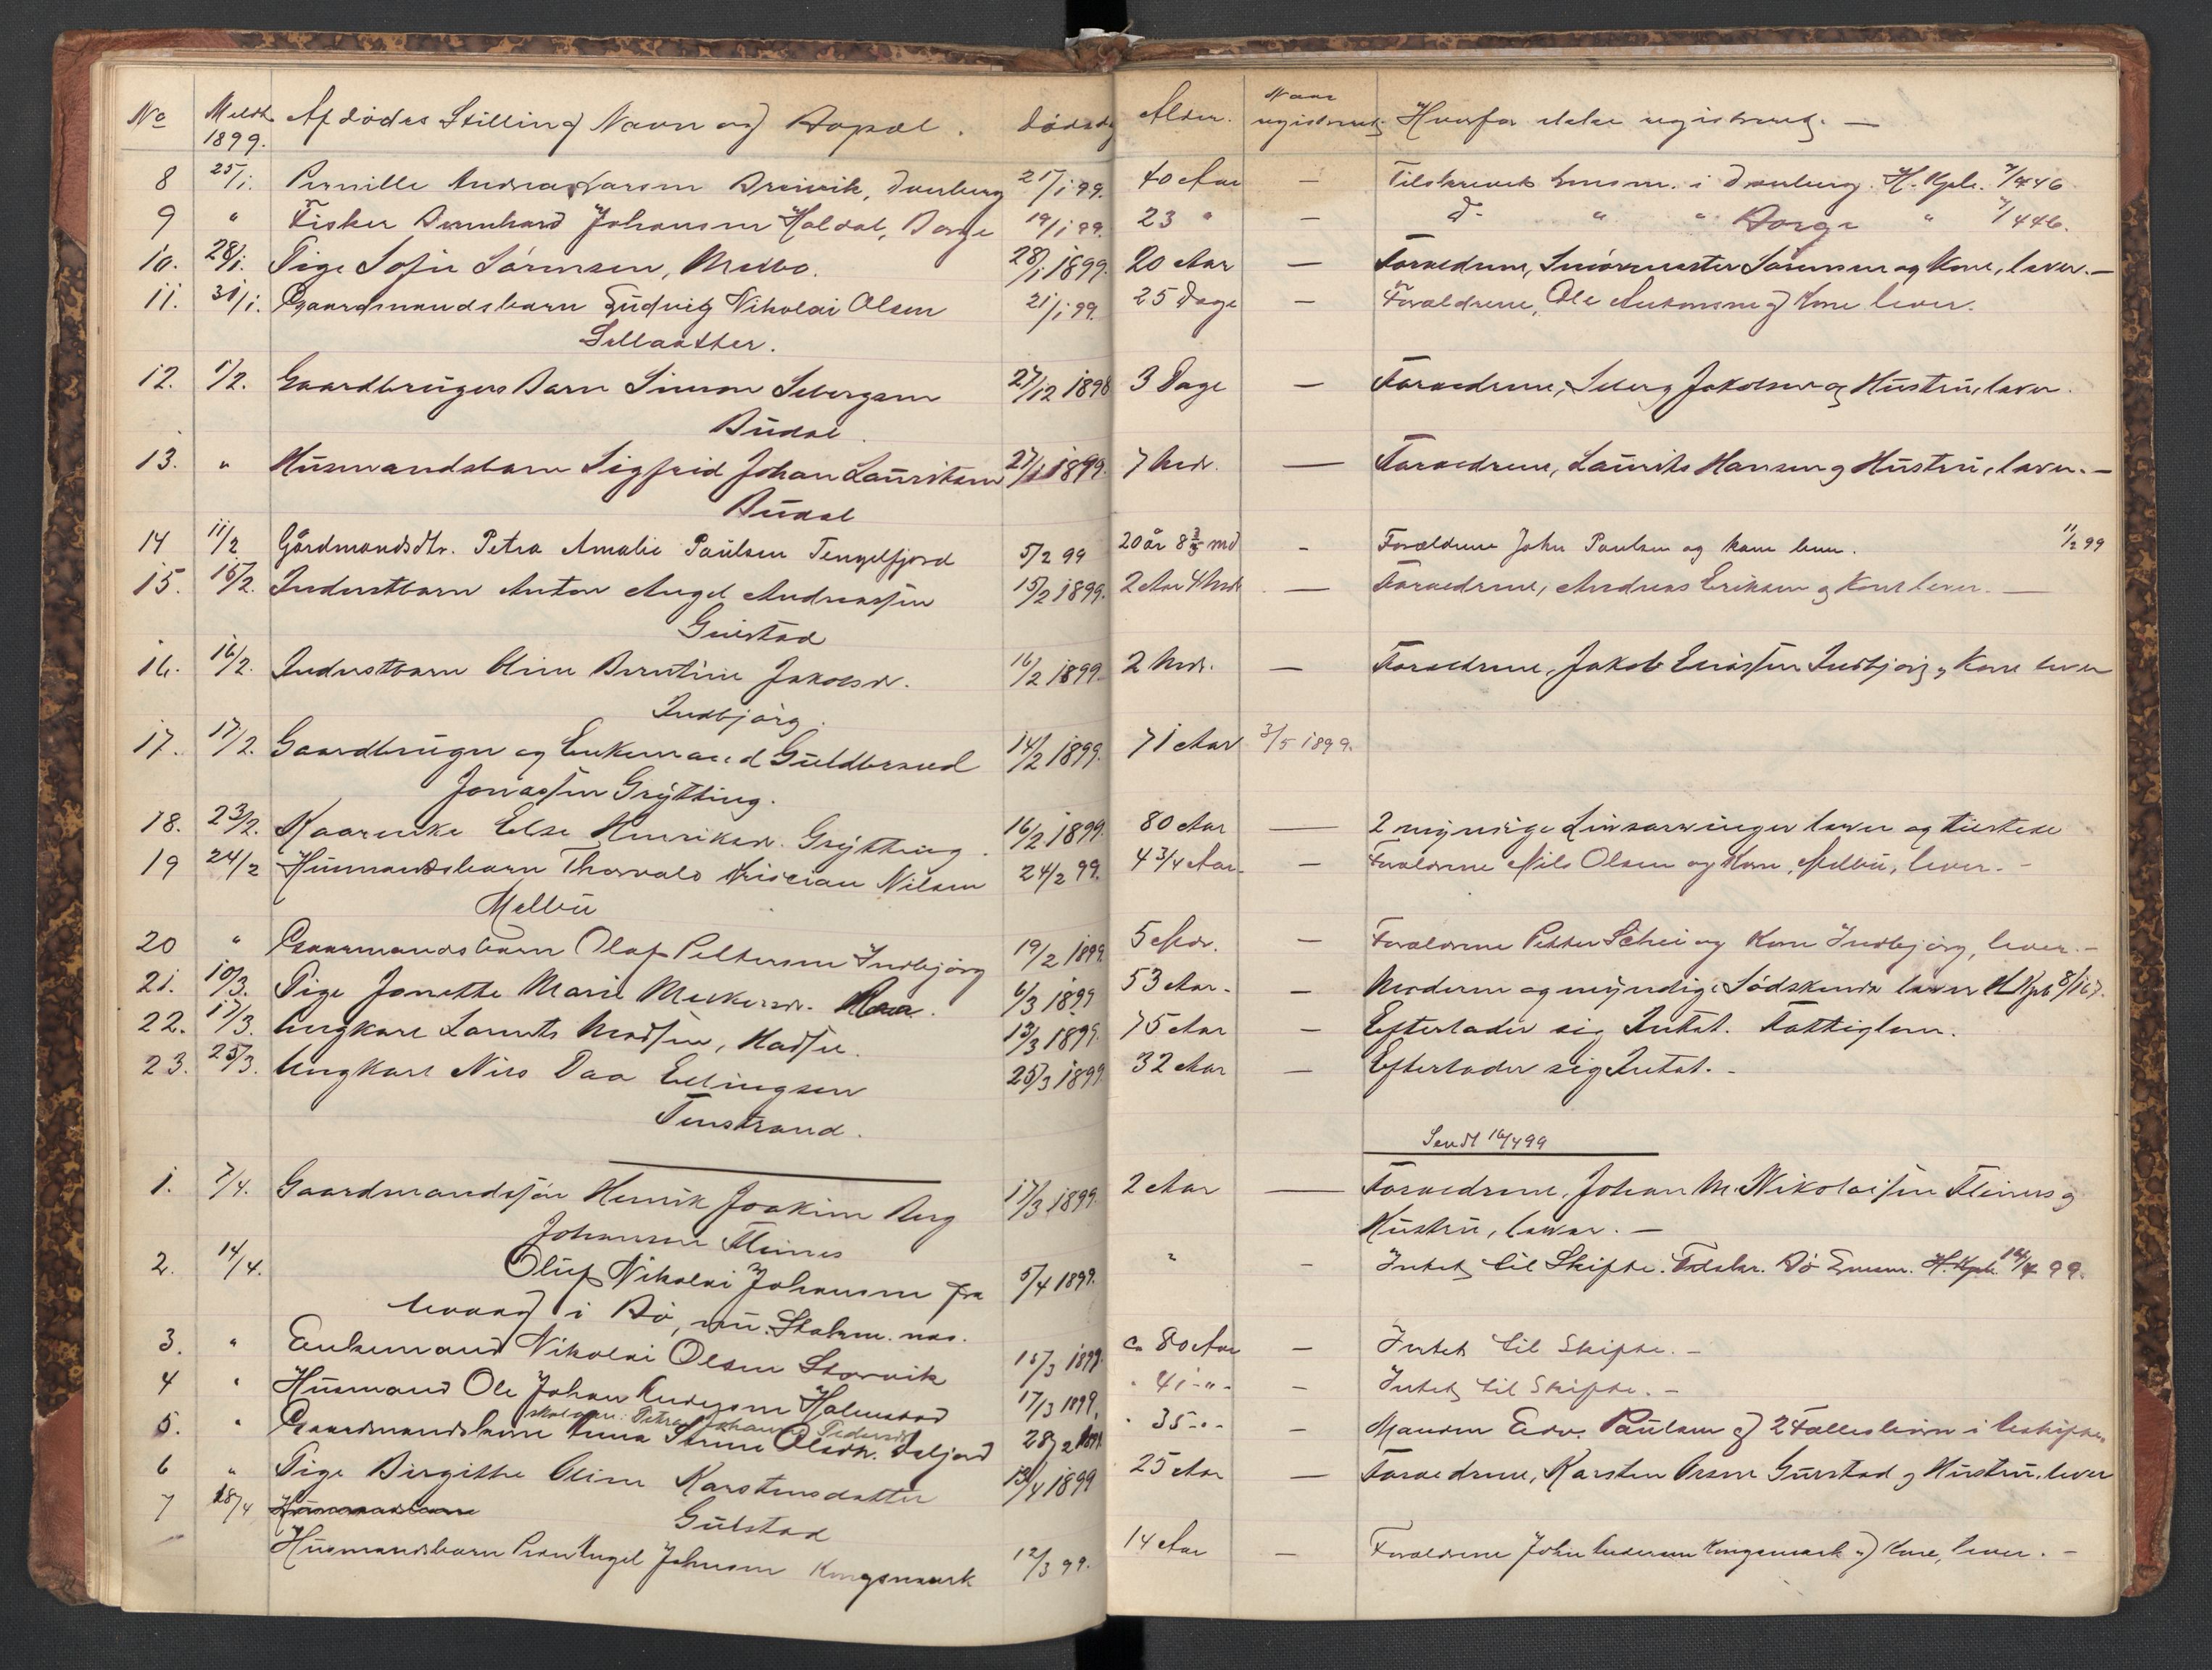 No Meldt 1899. Afdødes Stilling Navn og Bopæl. Dødsdag Alder. Naar registreret Hvorfor ikke registreret. —
8 25/1. Pernille Andrea Larsen Breivik, 21/1 99. 40 Aar — Tilskrevet Lensm. i
9 " Fisker Bernhard Johansen Haldal, Borge 19/1 99. 23 " — d- " " Borge " 446.
10. 28/1. Pige Sofie Sørensen, Melbo. 28/1 1899. 20 Aar — Forældrene, Sørensen og Kone, lever. —
11. 31/1. Gaardmandsbarn Ludvig Nikolai Olsen 21/1 99. 25 Dage — Forældrene, Ole Antonsen og Kone lever.
12. 1/2. Gaardbrugers Barn Simon Sebergsen 27/12 1898 3 Dage — Forældrene, Seberg Jakobsen og Hustru, lever.
Budal.
13. " Husmandsbarn Sigfrid Johan Lauritsen 27/1 1899. 7 Mdr. — Forældrene, Laurits Hansen og Hustru, lever. —
Budal
14 11/2 Gårdmandsdtr. Petra Amalie Paulsen Tengelfjord 5/2 99 20 år 8 md - Forældrene John Paulsen og kone lever. 11/2 99
15. 15/2. Inderstbarn Anton Angel Andreassen 15/2 1899. 2 Aar 4 Mdr — Forældrene, Andreas Eriksen og Kone lever. —
Guistad
16. 16/2. Inderstbarn Oline Berntine Jakobsdr. 16/2 1899. 2 Mdr. — Forældrene, Jakob Indbjørg og Kone lever
Indbjørg.
17. 17/2. Gaardbruger og Enkemand Guldbrand 14/2 1899. 71 Aar 3/5 1899.
Jonassen Grytting.
18. 23/2. Kaarenke Else Henriksdr. Grytting. 16/2 1899. 80 Aar — 2 myndige Livsarvinger lever og
19 24/2 Husmandsbarn Thorvald Kristian Nilsen 24/2 99. 4 3/4 Aar — Forældrene Nils Olsen og Kone, Melbu, lever. -
Melbu
20 " Gaardmandsbarn Olaf Pettersen Indbjørg 19/2 1899 5 Mdr. — Forældrene Petter Schei og Kone Indbjørg, lever. -
21. 10/3. Pige Jonette Marie 6/3 1899 53 Aar. — Moderen og myndige Sødskende lever
22. 17/3. Ungkarl Laurits Madsen, Hadsel. 13/3 1899. 75 Aar — Efterlader sig Intet. Fattiglem.
23. 25/3. Ungkarl Nils Daa Ellingsen 25/3 1899 32 Aar — Efterlader sig Intet. -
Finstrand.
Sendt 16/4 99
1. 7/4. Gaardmandssøn Henrik Joakim Berg 17/3 1899. 2 Aar — Forældrene, Johan M. Nikolaisen Fleines og
Johansen Fleines Hustru, lever. —
2. 14/4. Oluf Nikolai Johansen fra 5/4 1899. " - Intet til Skifte. Bø Lensm. 99.
i Bø, nu Stokm. nes.
3. " Enkemand Nikolai Olsen Storvik 15/3 1899. ca 80 Aar — Intet til Skifte. -
4 " Husmand Ole Johan Andersen Holmstad 17/3 1899. " 41 -"- — Intet til Skifte. -
skal være: Petra Johanna Pedersdr
5. " Gaardmandskone Anna Olsdtr. 28/2 1899. " 35 -"- — Manden Edv. Paulsen og 2 Fællesbørn i
6 " Pige Birgitte Oline Karstensdatter 13/4 1899 25 Aar — Forældrene, Karsten Guistad og Hustru, lever
Gulstad
7 18/4 Husmandsbarn
Husmandsbarn Angel Johnsen Kongsmark 12/3 99. 14 Aar — Forældrene John Andersen Kongsmark og Kone, lever. -